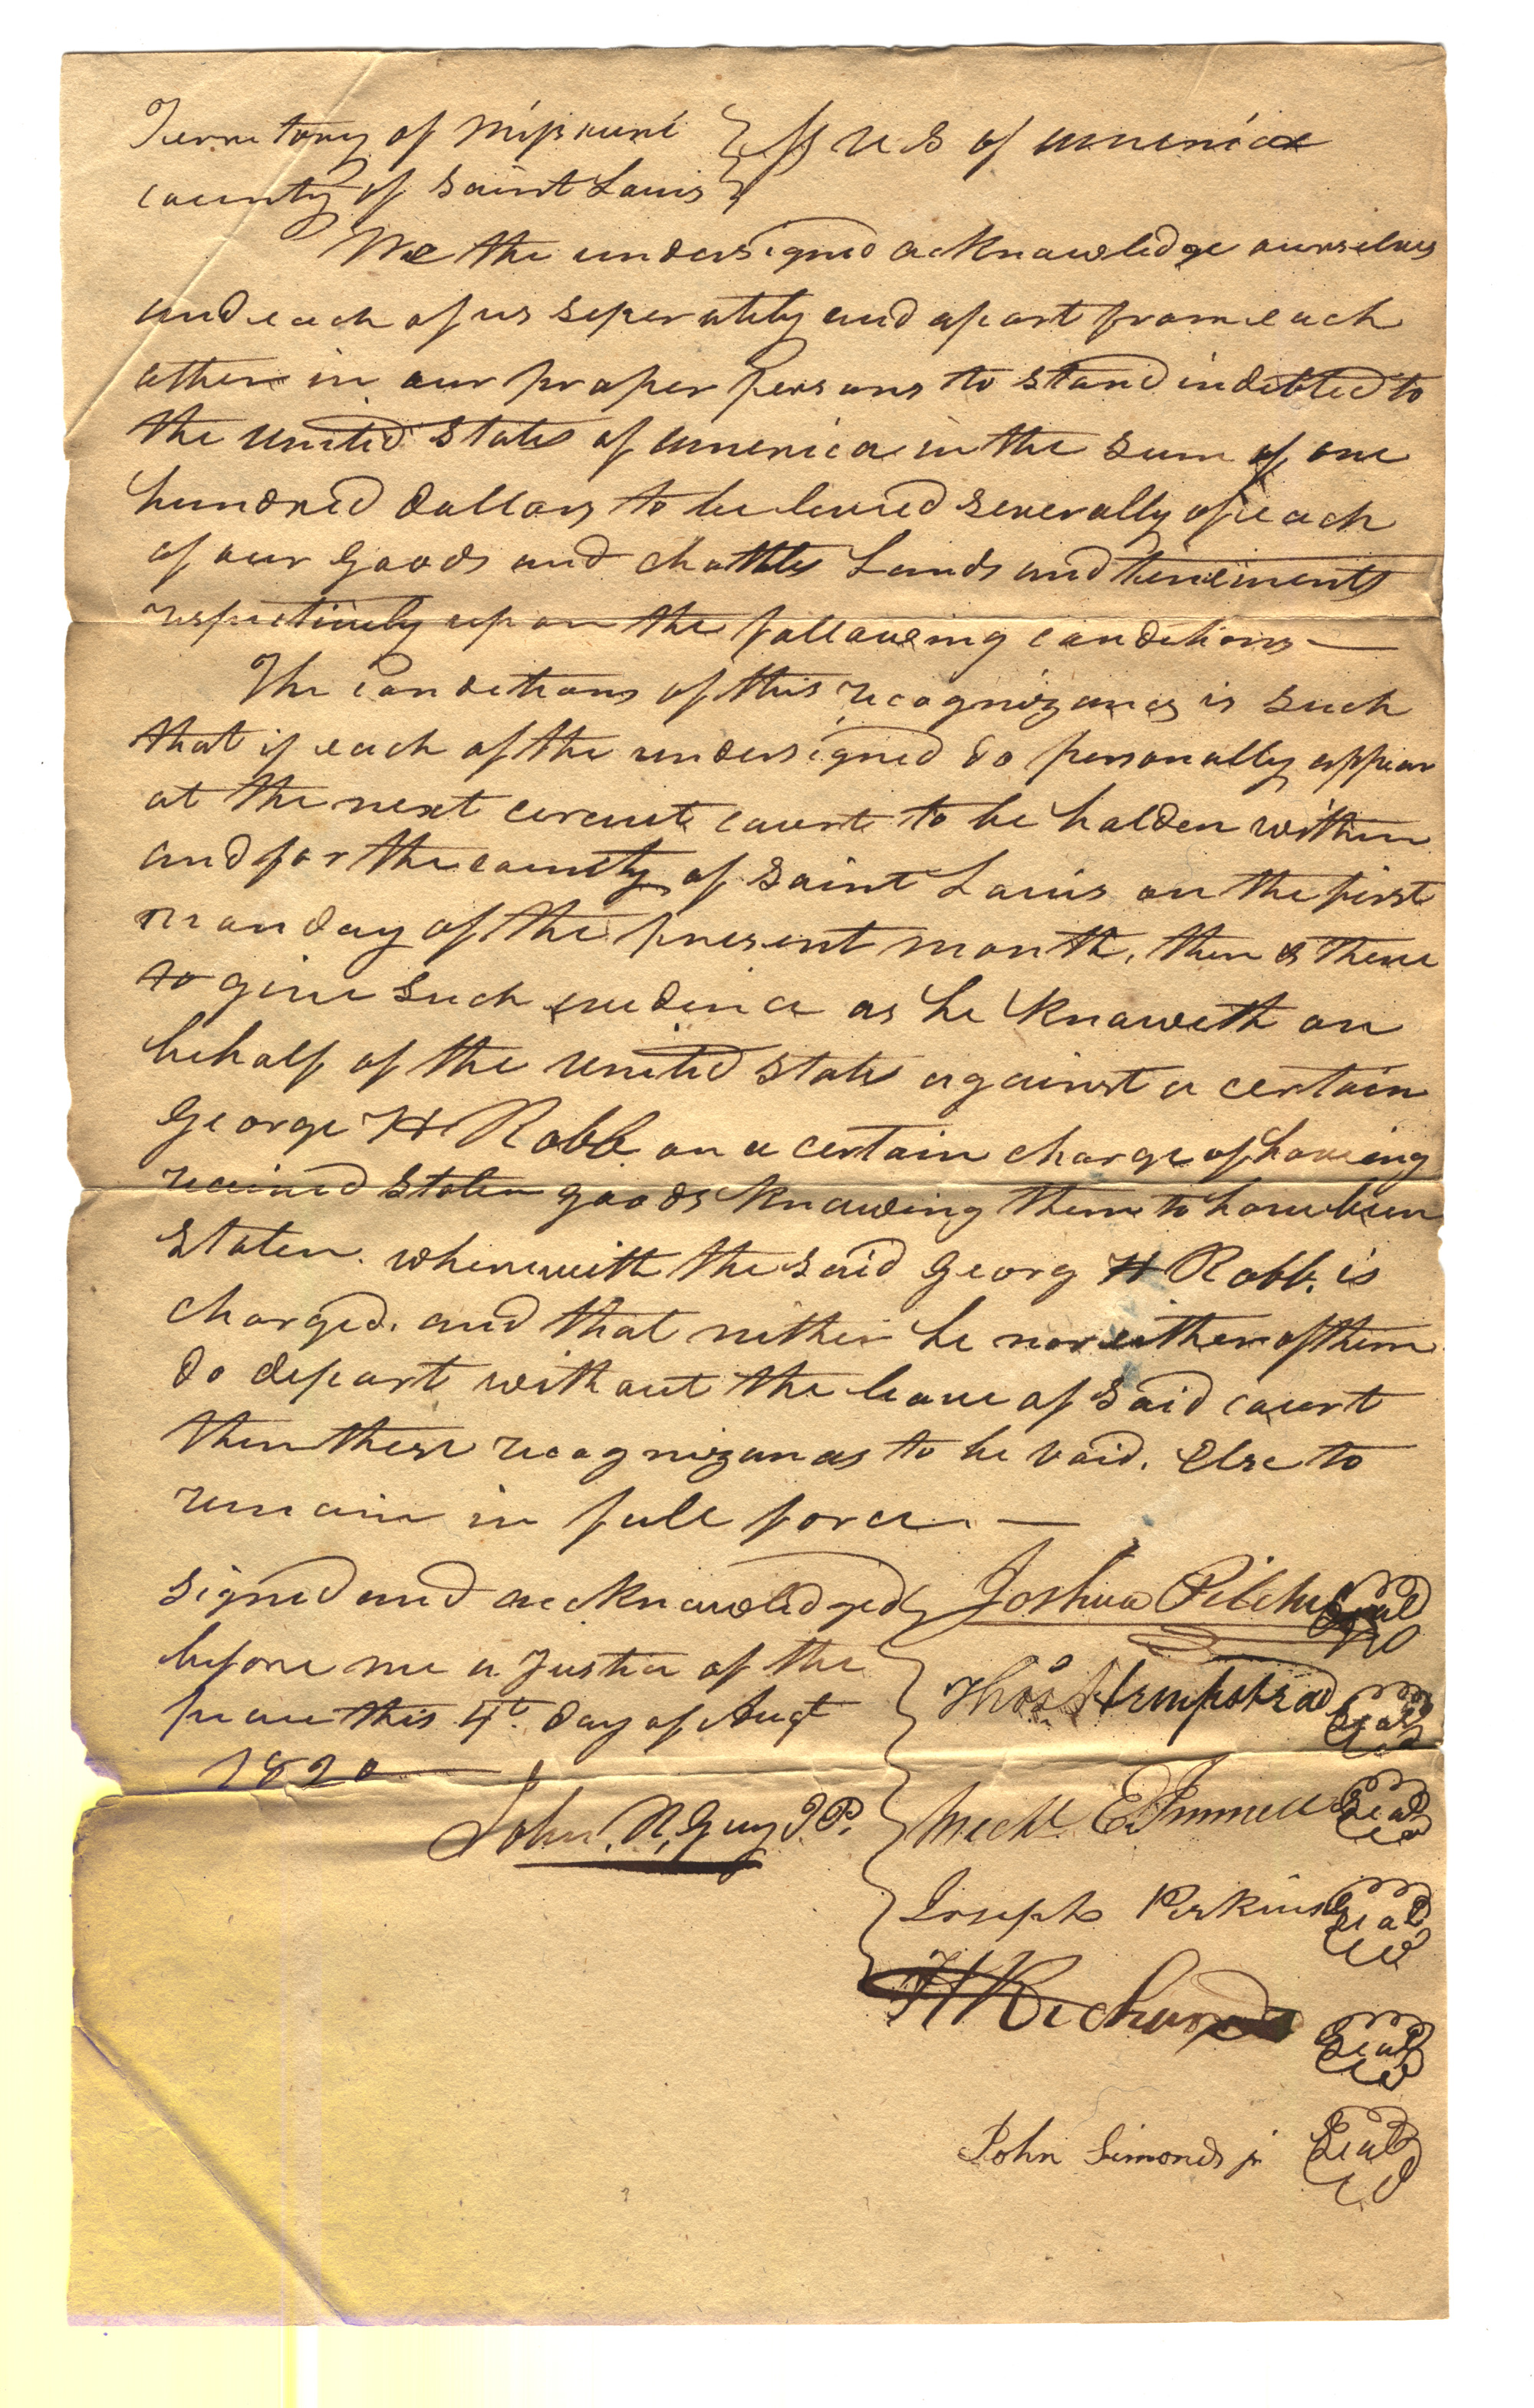 Territory of Missouri } ss U S of america
county of Saint Louis }
We the undersigned acknowledge ourselves
and each of us seperately and apart from each
other in our proper persons to stand indebted to
the united States of america in the sum of one
hundred dollars to be levied severally of each
of our goods and chattles Lands and tenements
respectively upon the following conditions —
The Conditions of this recognizances is such
that if each of the undersigned do personally appear
at the next circuit court to be holden within
and for the county of Saint Louis on the first
monday of the present month, then & there
to give such evidence as he knoweth on
behalf of the united States against a certain
George H Robb on a certain charge of haveing
recived Stolen goods knowing them to have been
Stolen. wherewith the said Georg H Robb. is
charged. and that nither he nor either of them
do depart without the leave of said court
then these recognizances to be void. Else to
remain in full force. —
Signed and acknowledged } Joshua Pilcher Seal
before me a Justice of the
peace this 4th day of Augt } Thos Hempstead Seal
1820
John. N. Guy J.P. } Michl E Immell Seal
Joseph Perkins Seal
H Richards Seal
John Simonds jr Seal